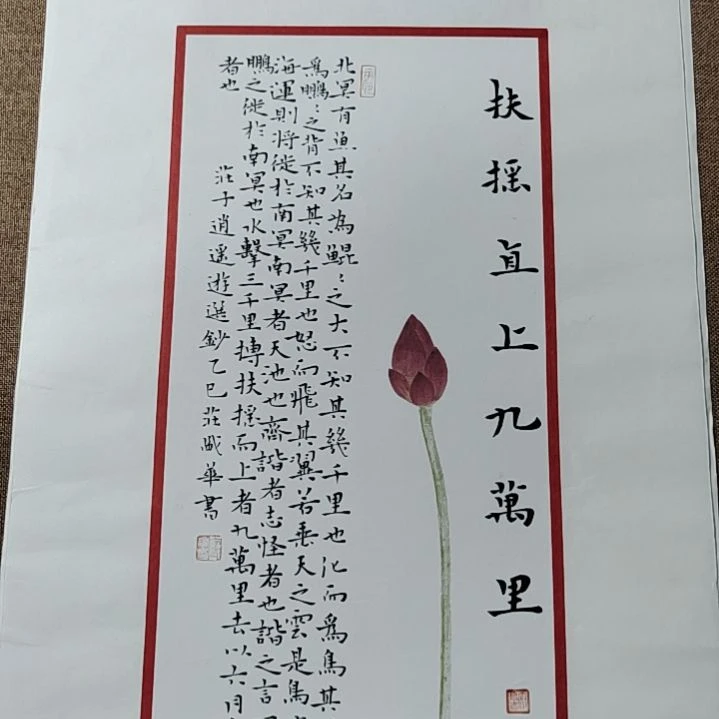 扶搖直上九萬里
北冥有魚其名為鯤〻之大不知其幾千里也化而爲鳥其
爲鵬〻之背不知其幾千里也怒而飛其翼若垂天之雲是鳥
海運則將徙於南冥南冥者天池也齊諧者志怪者也諧之言
鵬之徙於南冥也水擊三千里摶扶搖而上者九萬里去以六月
者也
莊子逍遙遊選鈔乙巳莊華書